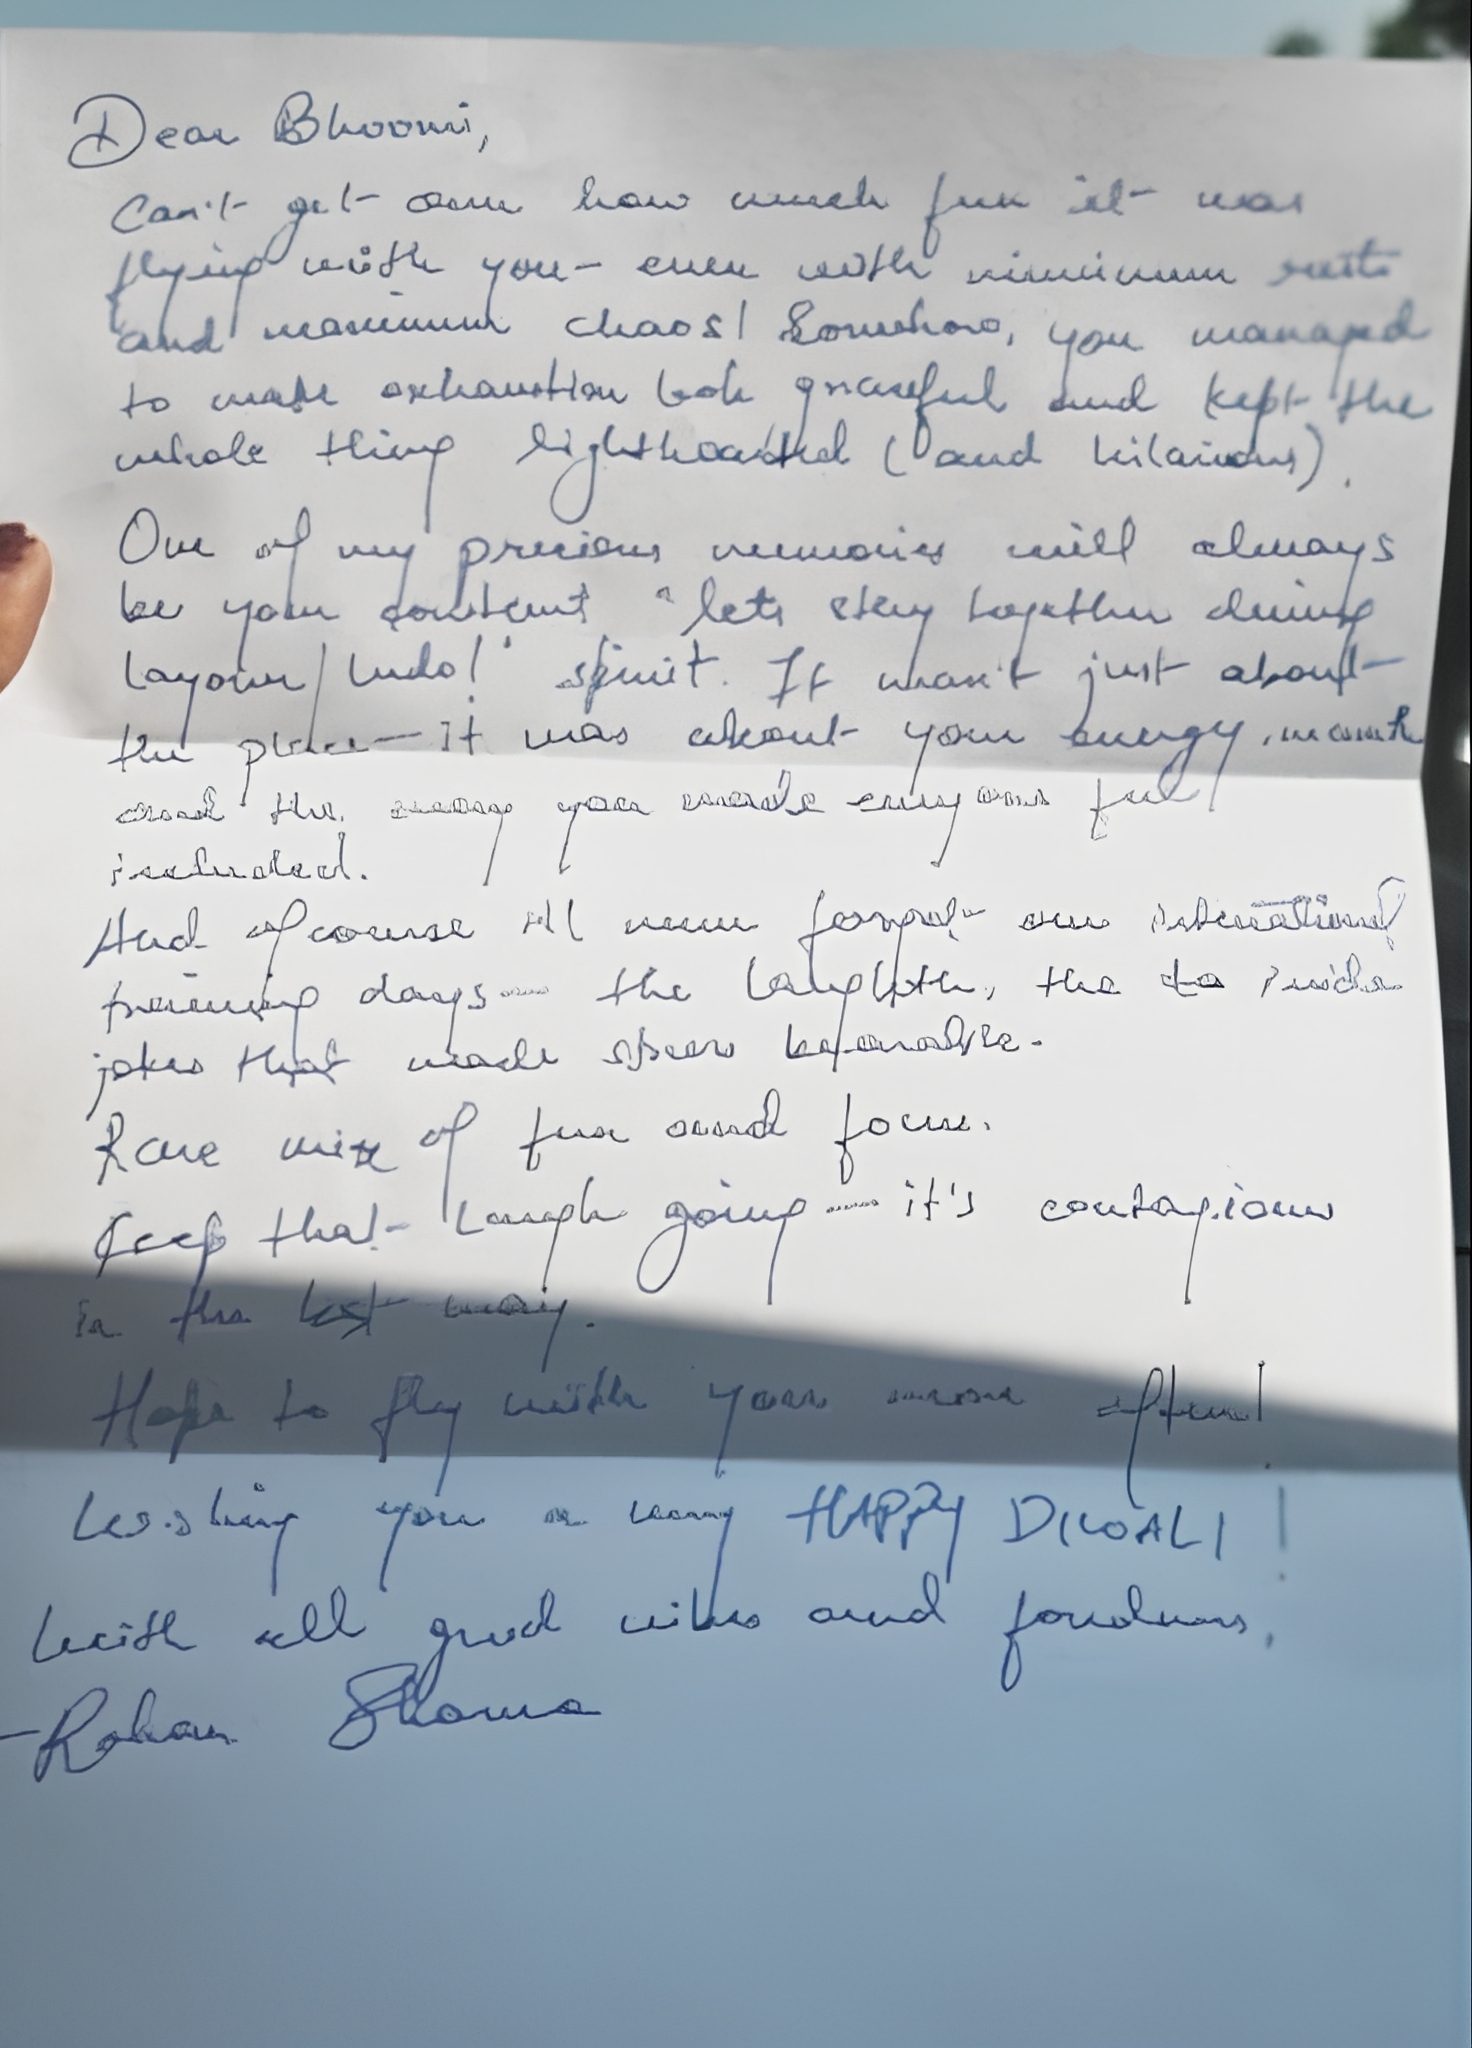 Dear Bhoomi,
Can't get over how much fun it was
flying with you - even with minimum rests
and maximum chaos! Somehow, you managed
to make exhaustion look graceful and kept the
whole thing lighthearted (and hilarious).
One of my precious memories will always
be your constant "lets stay together during
layover/ludo!" spirit. It wasn't just about
the place - it was about your energy, warmth
and the way you made everyone feel
included.
And ofcourse I'll never forget our international
training days - the laughter, the inside
jokes that made bearable.
Rare mix of fun and focus.
Keep that laugh going - it's contagious
in the best way.
Hope to fly with you more often!
Wishing you a very HAPPY DIWALI!
With all good vibes and fondness,
- Rohan Sharma